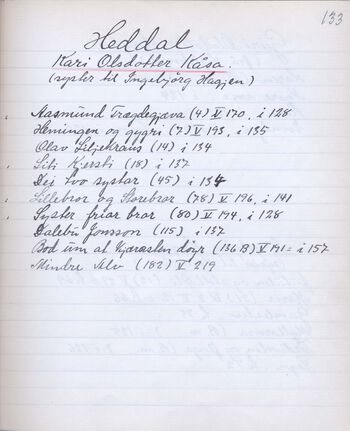 133
Heddal
Kari Olsdotter Kåsa.
(syster til Ingebjörg Hagjen)
Aasmund Frægdegjæva (4) V 170, i 128
Hemingen og gygri (7) V 193, i 135
Olav Liljekrans (14) i 134
Liti Kjersti (18) i 137
Dei tvo systar (45) i 134
Lillebror og Storebror (78) V 196, i 141
Syster friar bror (80) V 194, i 128
Dalebu Jonsson (115) i 137
Bod um at Kjærasten döyr (136 B) V 191 = i 157
Mindre Alv (182) V 219